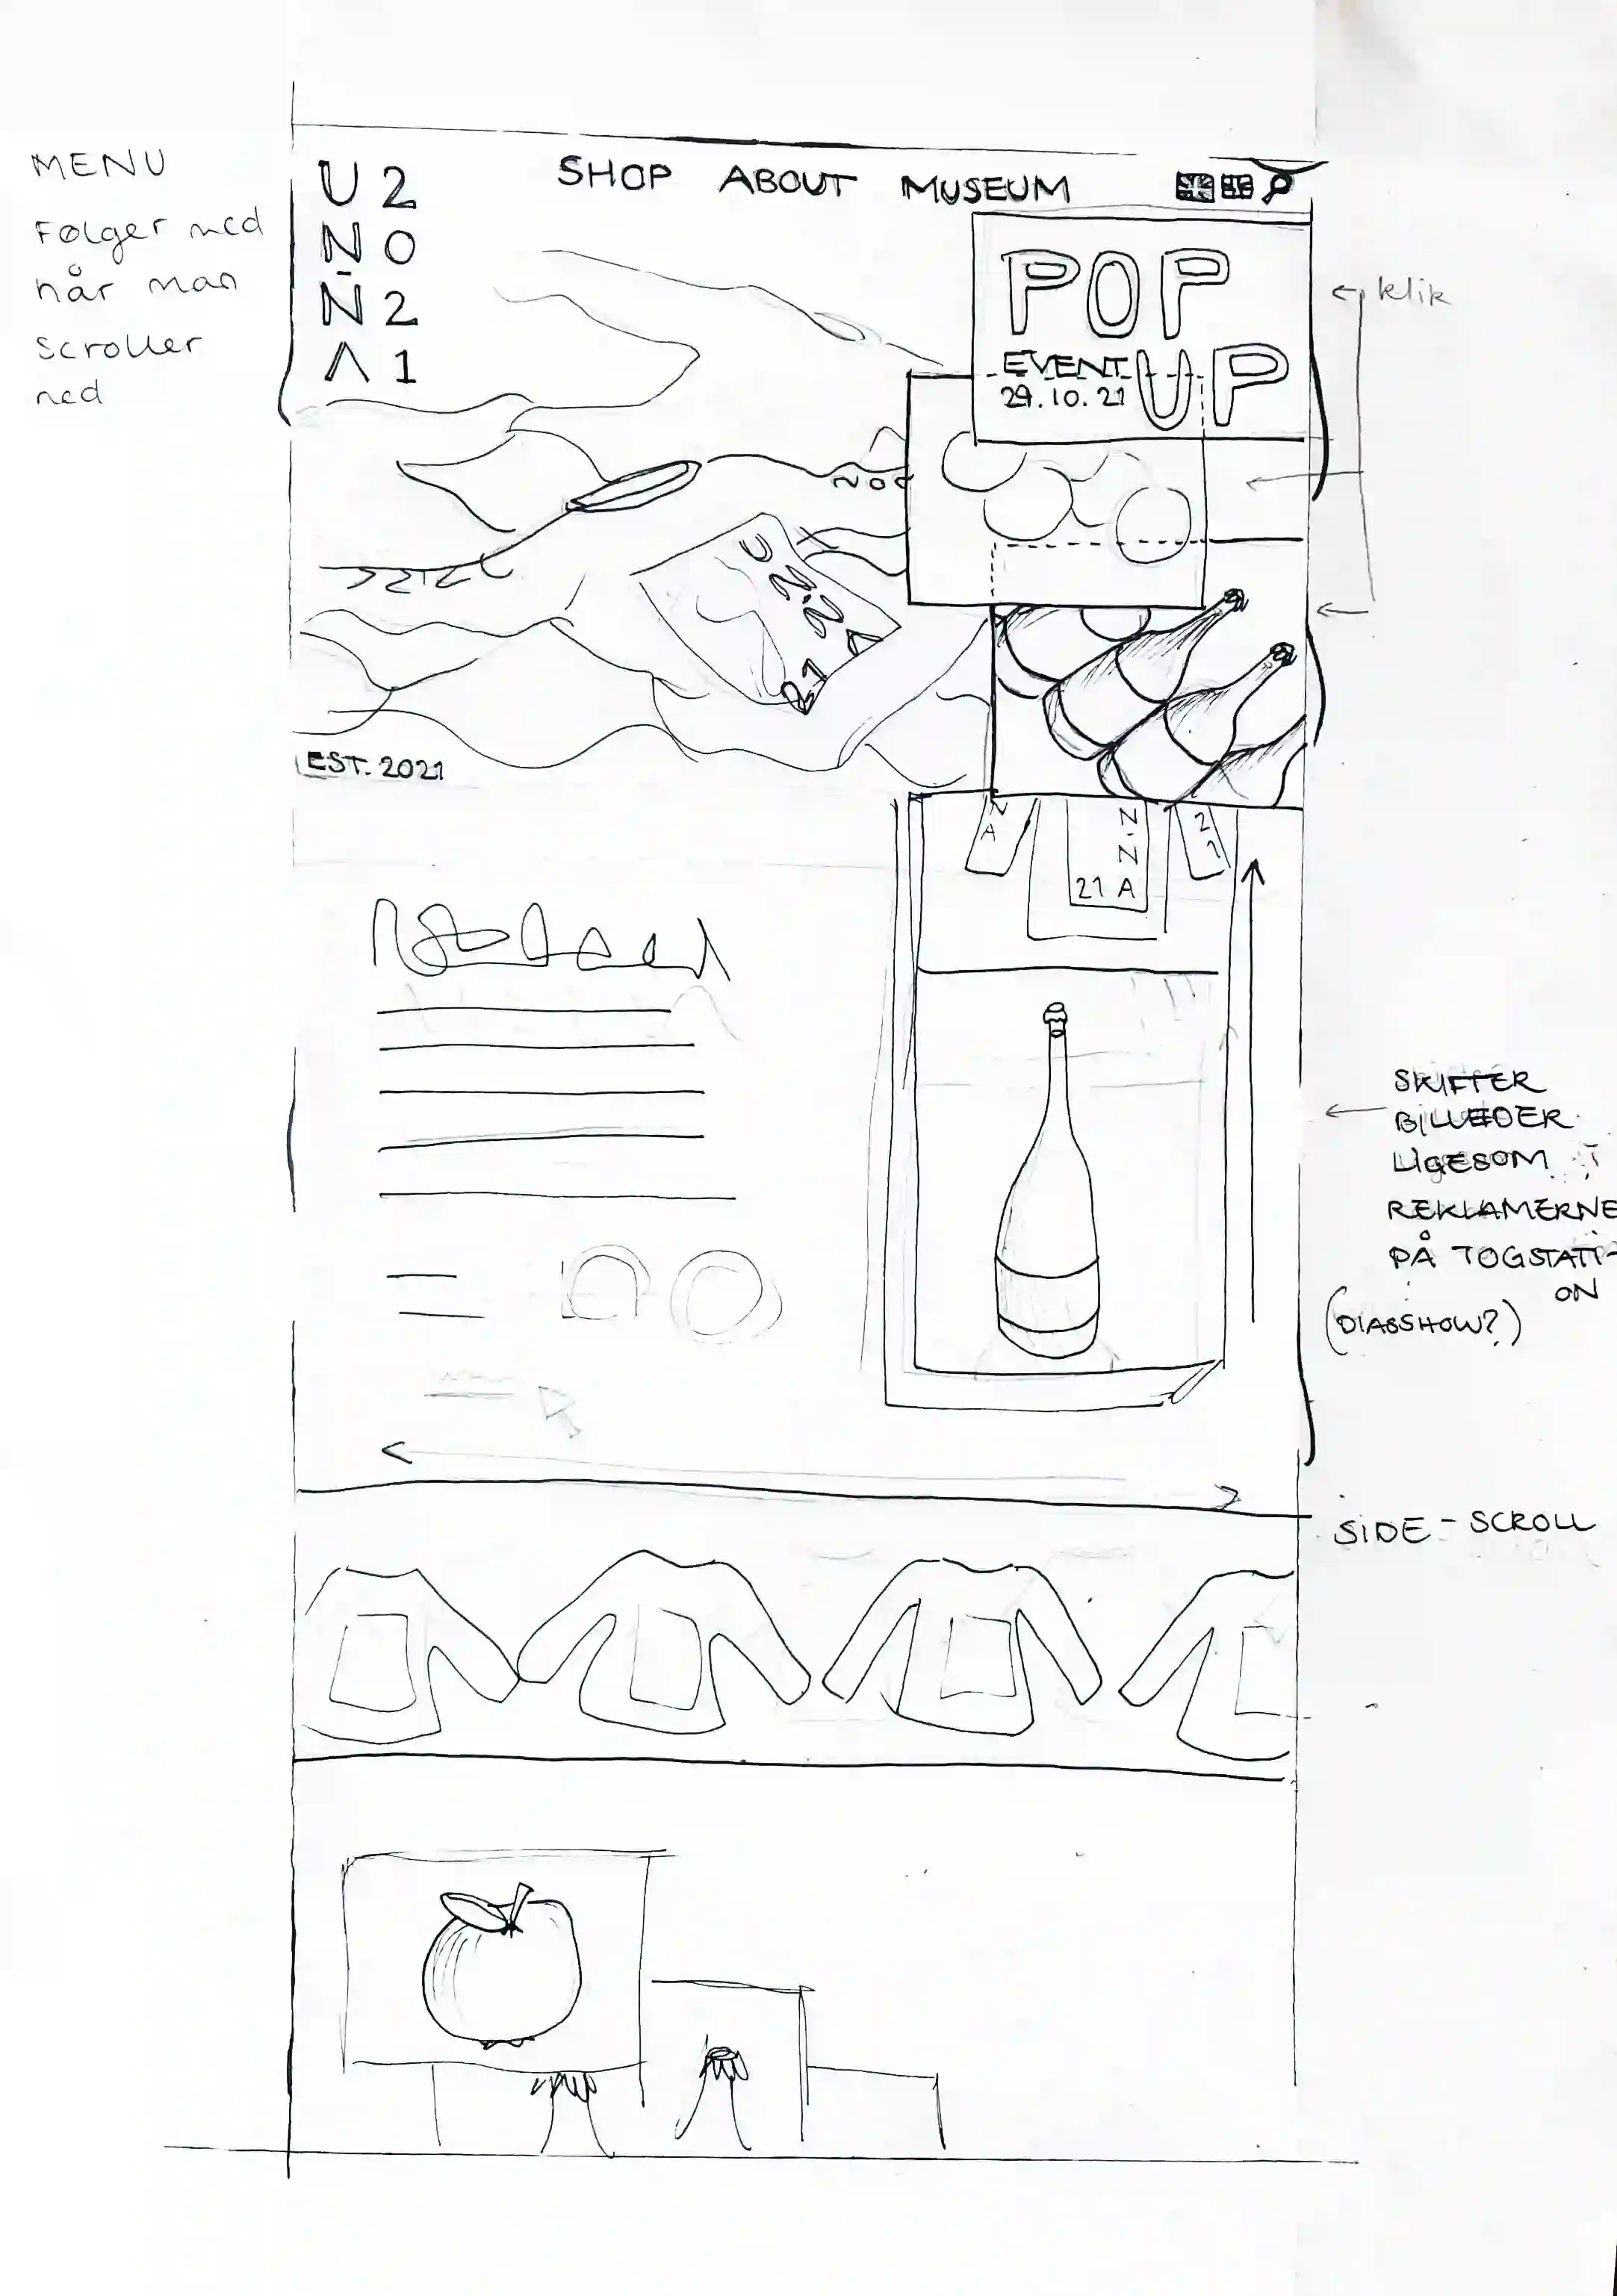 MENU
Følger med
når man
scroller
ned
U 2
N O
N 2
Λ 1
SHOP ABOUT MUSEUM
POP
UP
EVENT
29.10.21
← klik
EST. 2021
N
A
N
N
21 A
2
1
SKIFTER
BILLEDER
LIGESOM
REKLAMERNE
PÅ TOGSTATI-
ON
(DIASSHOW?)
SIDE-SCROLL